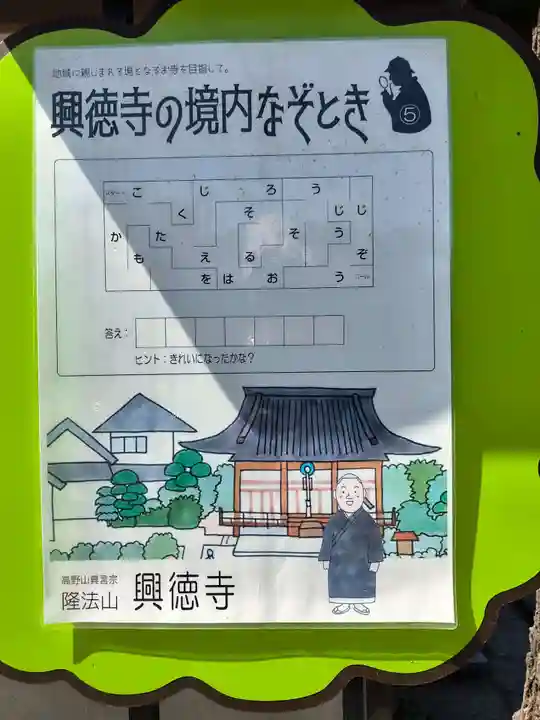 地域に親しまれる場となるお寺を目指して。
興徳寺の境内なぞとき
⑤
こ じ ろ う
く そ じ じ
か た そ う
も え る ぞ
を は お う
答え：
ヒント：きれいになったかな？
高野山真言宗
隆法山 興徳寺